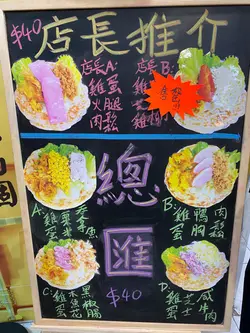 $40
店長推介
店長A:
雞蛋
火腿
肉鬆
店長B:
雞
總
匯
$40
A:
雞蛋
粟米
B:
雞蛋
鴨胸
肉鬆
C:
雞蛋
木魚花
黑椒腸
D:
雞蛋
芝士
咸牛肉